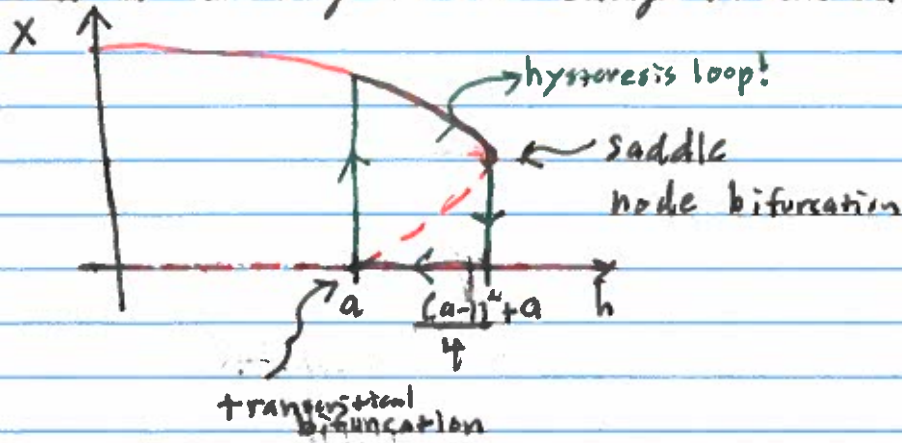 X
hysteresis loop!
saddle
node bifurcation
a
(a-1)²+a
4
h
transcritical
bifurcation